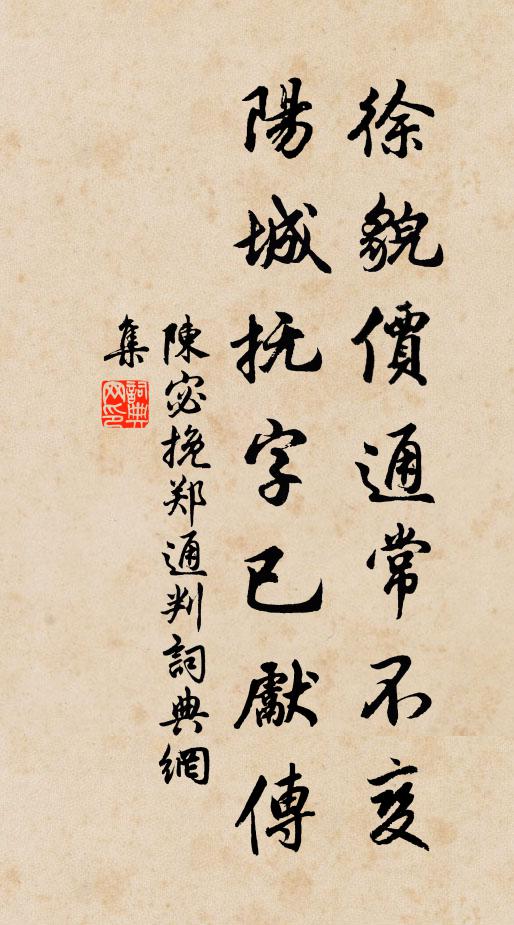 徐貌價通常不变
陽城抚字已獻傳
陳宓挽郑通判詞典網
集
詞典
网印